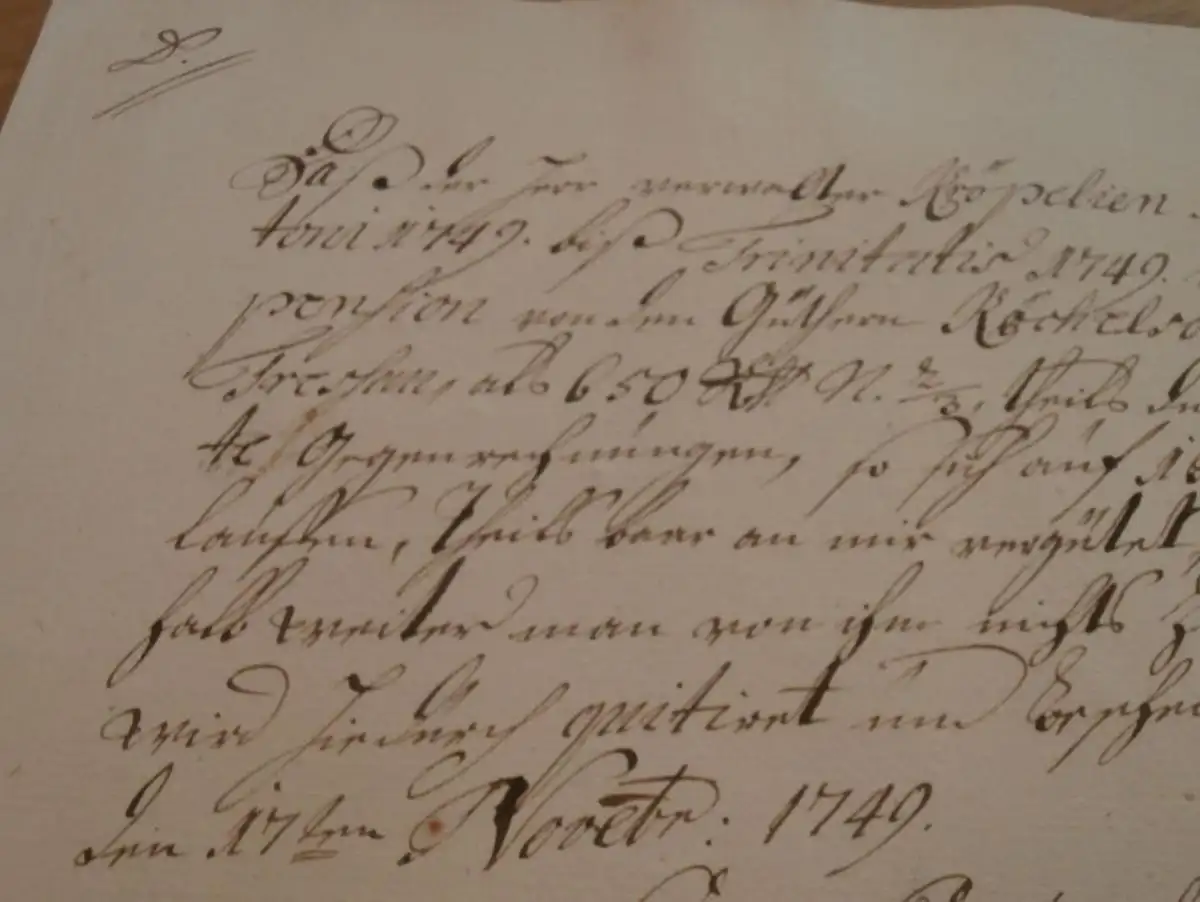 D.
Daß der Herr verwalter Röpelien
toni 1749. biß Trinitatis 1749.
pension von den Güthern
Tressau, als 650 Rthl N. 2/3, theils
te Gegenrechnungen, so sich auf
lauffen, theils baar an mir vergütet
halb weiter man von ihm nichts
wird hiedurch quitiret und
den 17ten Novebr: 1749.